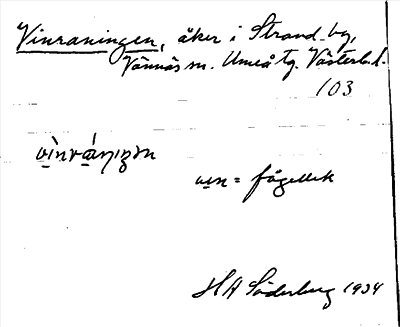 Vinraningen, åker i Strand by,
Vännäs sn. Umeå tg. Västerb.l.
103
vinråniŋæn
vin = fågellek
HA Söderberg 1934